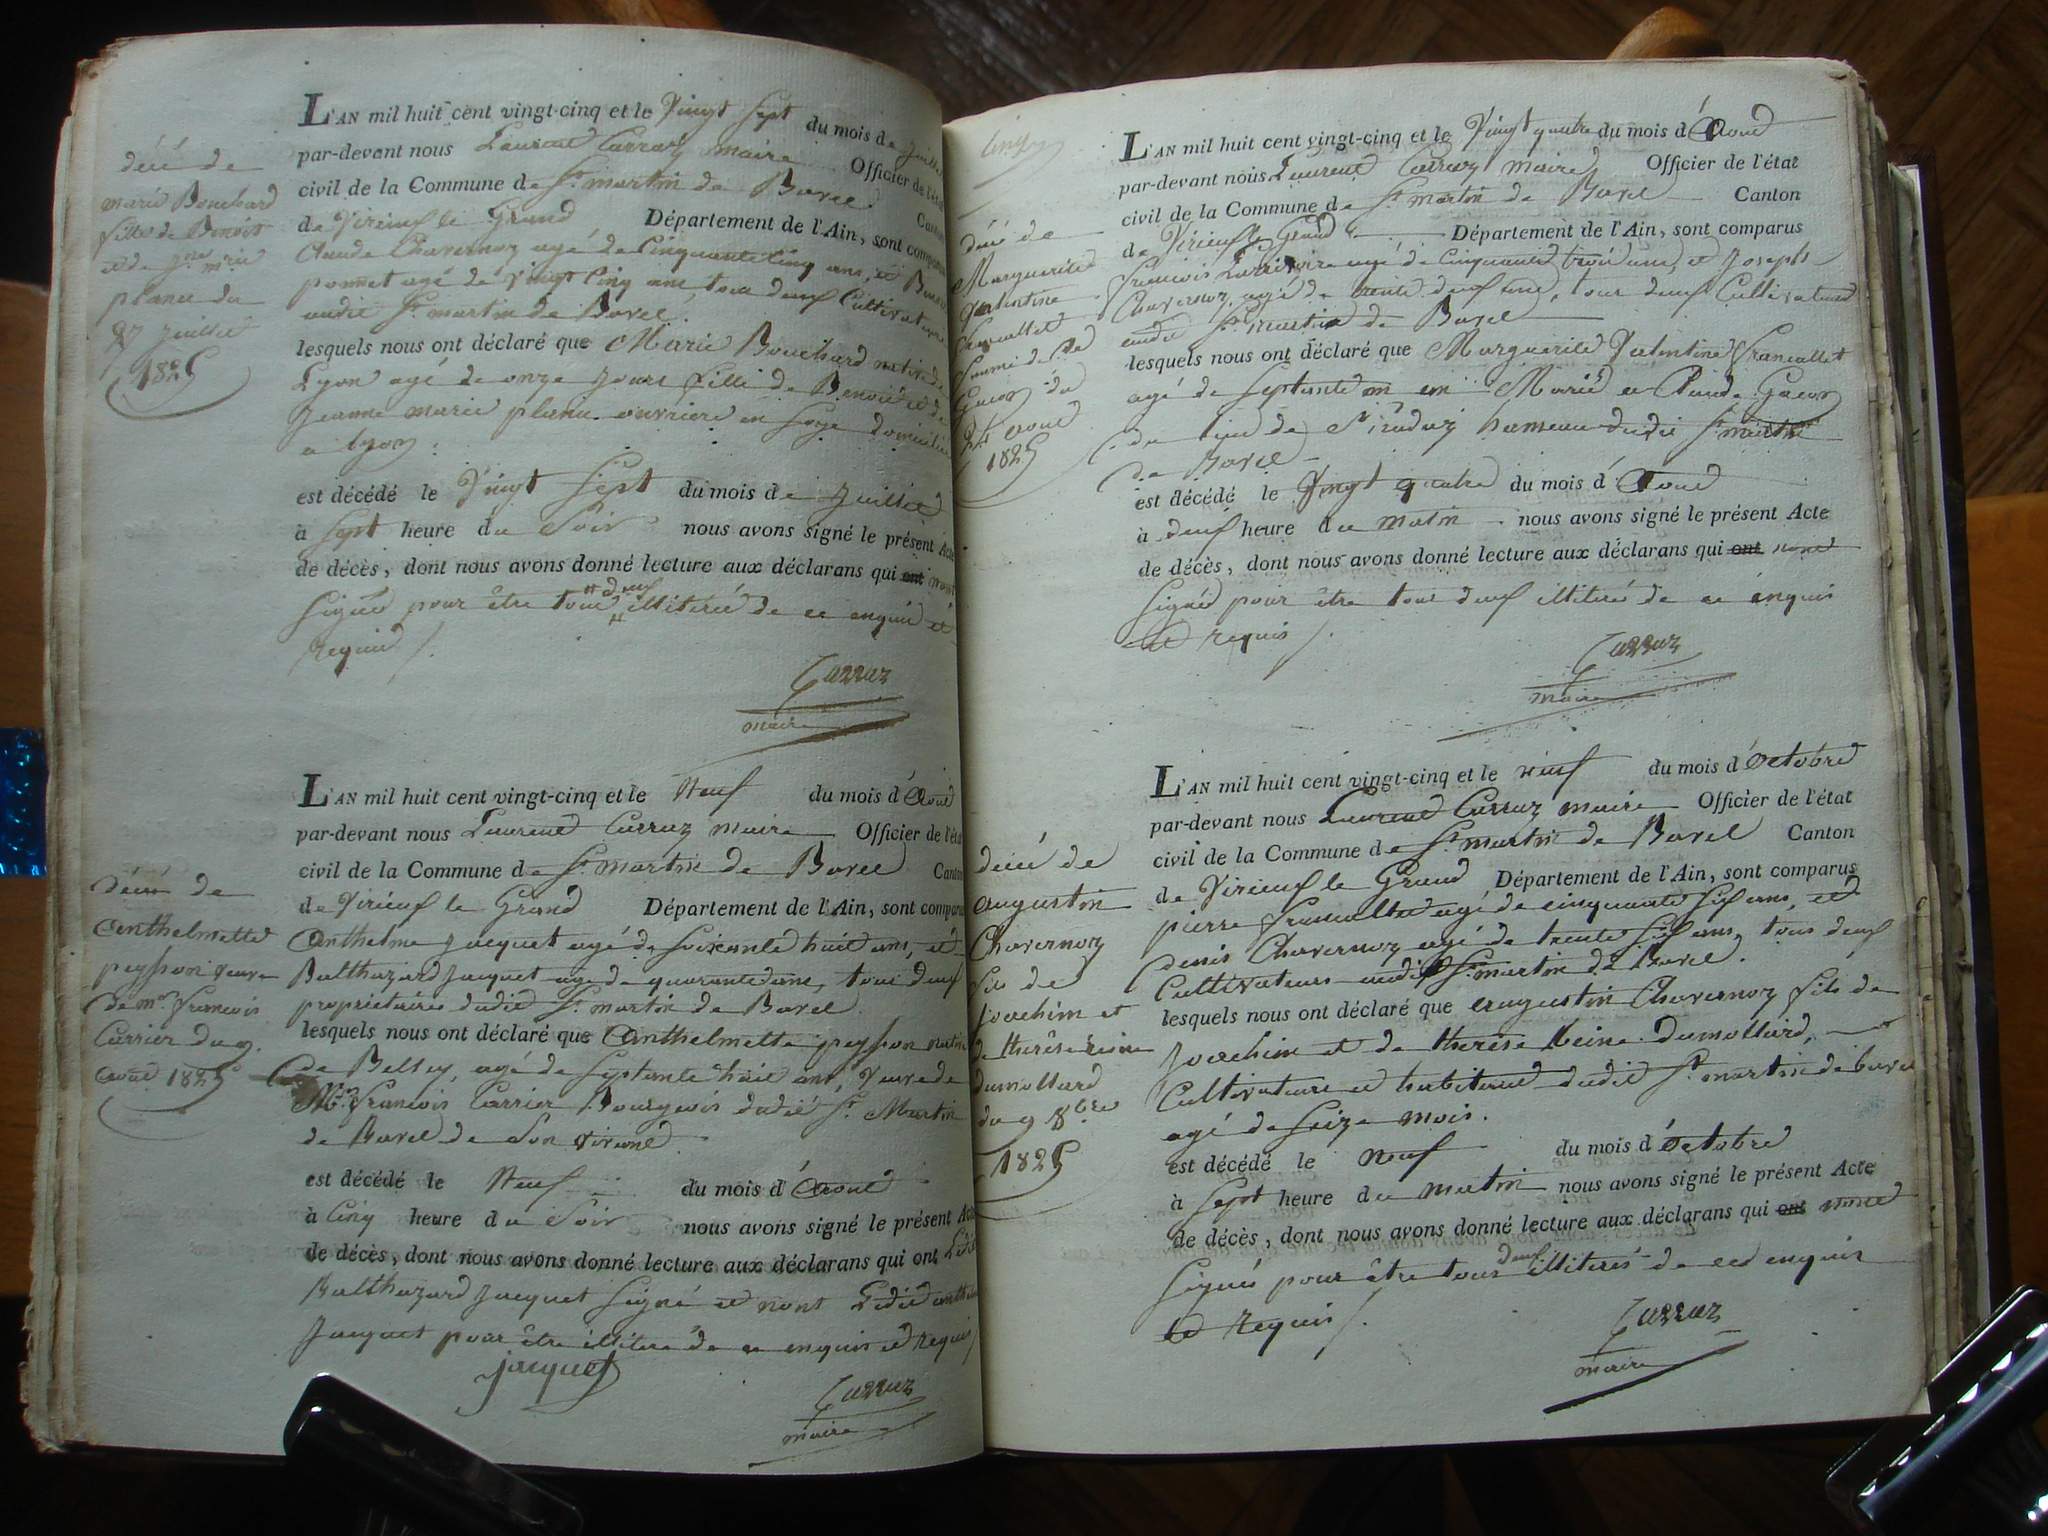 décé de
marie Bouchard
fille de Benoit
et de Jne mrie
planu du
27 juillet
1825
L'AN mil huit cent vingt-cinq et le Vingt Sept du mois de juillet
par-devant nous Laurent Carraz maire Officier de l'état
civil de la Commune de St martin de Bavel Canton
de Virieux le Grand Département de l'Ain, sont comparus
Claude Chavernoz agé de Cinquante Cinq ans, et
ponnet agé de Vingt Cinq ans tous deux Cultivateurs
audit St martin de Bavel.
lesquels nous ont déclaré que Marie Bouchard native de
Lyon agé de onze jours fille de Benoit et de
Jeanne marie planu ouvriere en Soye domicilié
a Lyon.
est décédé le Vingt Sept du mois de juillet
à Sept heure du Soir nous avons signé le présent Acte
de décès, dont nous avons donné lecture aux déclarans qui ont nont
Signé pour être tous deux illitéré de ce enquis et
requis /.
Carraz
maire
décé de
Anthelmette
peysson veuve
de mr francois
Carrier du 9.
aout 1825
L'AN mil huit cent vingt-cinq et le Neuf du mois d'Aout
par-devant nous Laurent Carraz maire Officier de l'état
civil de la Commune de St martin de Bavel Canton
de Virieux le Grand Département de l'Ain, sont comparus
Anthelme Jacquet agé de Soixante huit ans, et
Balthazard Jacquet agé de quarante ans, tous deux
proprietaires dudit St martin de Bavel.
lesquels nous ont déclaré que Anthelmette peysson native
de Belley, agé de Septante huit ans, Veuve de
Mr francois Carrier Bourgeois dudit St Martin
de Bavel de Son vivant
est décédé le Neuf du mois d'Aout
à Cinq heure du Soir nous avons signé le présent Acte
de décès, dont nous avons donné lecture aux déclarans qui ont Ledit
Balthazard Jacquet Signé et nont Ledit anthelme
Jacquet pour être illitéré de ce enquis et requis /
jacquet
Carraz
maire
Cinq
décé de
Marguerite
Valentine
francallet
femme de Cde
Gacon du
24 aout
1825
L'AN mil huit cent vingt-cinq et le Vingt quatre du mois d'Aout
par-devant nous Laurent Carraz maire Officier de l'état
civil de la Commune de St martin de Bavel Canton
de Virieux le Grand Département de l'Ain, sont comparus
francois agé de Cinquante trois ans, et Joseph
Chavernoz, agé de trente deux ans, tous deux Cultivateurs
audit St martin de Bavel
lesquels nous ont déclaré que Marguerite Valentine francallet
agé de Septante un an Marié a Claude Gacon
du lieu de hameau dudit St martin
de Bavel
est décédé le Vingt quatre du mois d'Aout
à deux heure du matin nous avons signé le présent Acte
de décès, dont nous avons donné lecture aux déclarans qui ont nont
Signé pour être tous deux illitéré de ce enquis
et requis /.
Carraz
maire
décé de
augustin
Chavernoz
fils de
joachim et
de therèse reine
dumollard
du 9 8bre
1825
L'AN mil huit cent vingt-cinq et le neuf du mois d'Octobre
par-devant nous Laurent Carraz maire Officier de l'état
civil de la Commune de St martin de Bavel Canton
de Virieux le Grand Département de l'Ain, sont comparus
pierre francallet agé de cinquante Six ans, et
denis Chavernoz agé de trente Six ans, tous deux
Cultivateurs audit St martin de Bavel.
lesquels nous ont déclaré que augustin Chavernoz fils de
Joachim et de therèse Reine Dumollard,
Cultivateurs et habitant dudit St martin de bavel
agé de Seize mois.
est décédé le neuf du mois d'Octobre
à Sept heure du matin nous avons signé le présent Acte
de décès, dont nous avons donné lecture aux déclarans qui ont nont
Signés pour être tous deux illitéré de ce enquis
et requis /.
Carraz
maire